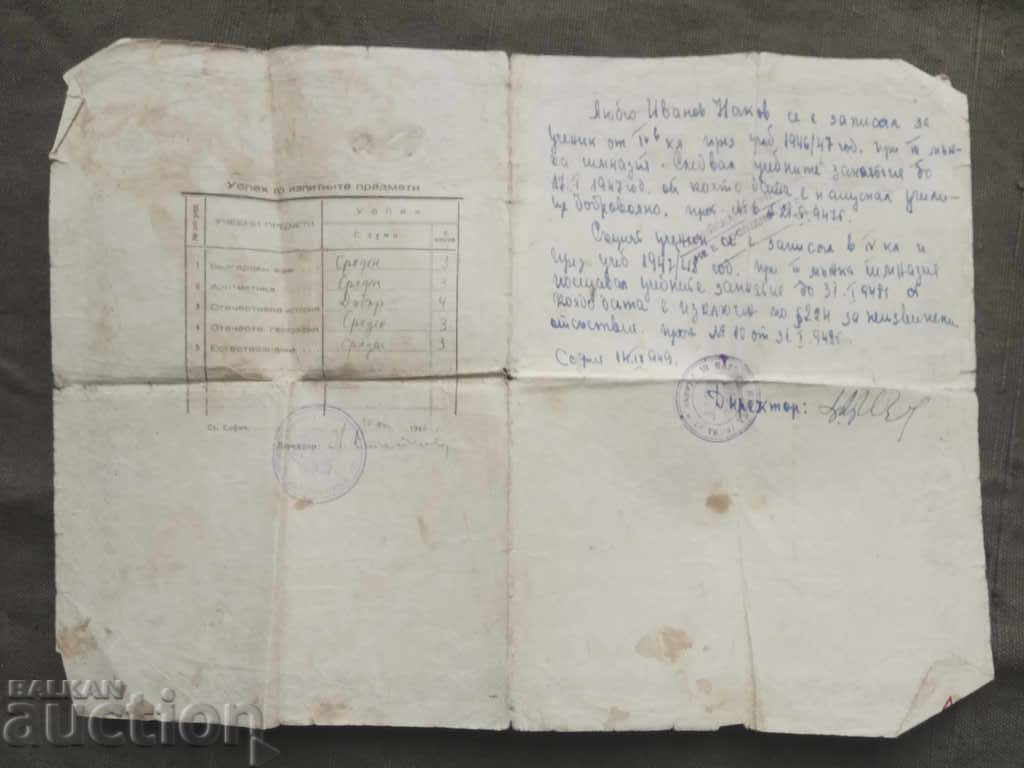 Успех по изпитните предмети
№ по ред
УЧЕБНИ ПРЕДМЕТИ
У с п е х
С думи
1 Български език Среден 3
2 Аритметика Среден 3
3 Отечествена история Добър 4
4 Отечествена география Среден 3
5 Естествознание Среден 3
Гр. София,
Директор:
Любчо Иванов Наков се е записал за
ученик от IV в кл през учеб. 1946/47 год. при III мъж-
ка гимназия. Следвал учебните занятия до
17.I 1947 год. от която дата е напуснал учили-
ще доброволно. прот. №
Същият ученик се е записал в IV кл и
през учеб 1947/48 год. при III мъжка гимназия
посещавал учебните занятия до 31.I 948г от
която дата е изключен по за неизвинени
отсъствия. прот № 10 от 31.I 948г.
София 14.IX 949.
Директор:
BALKAN
auction